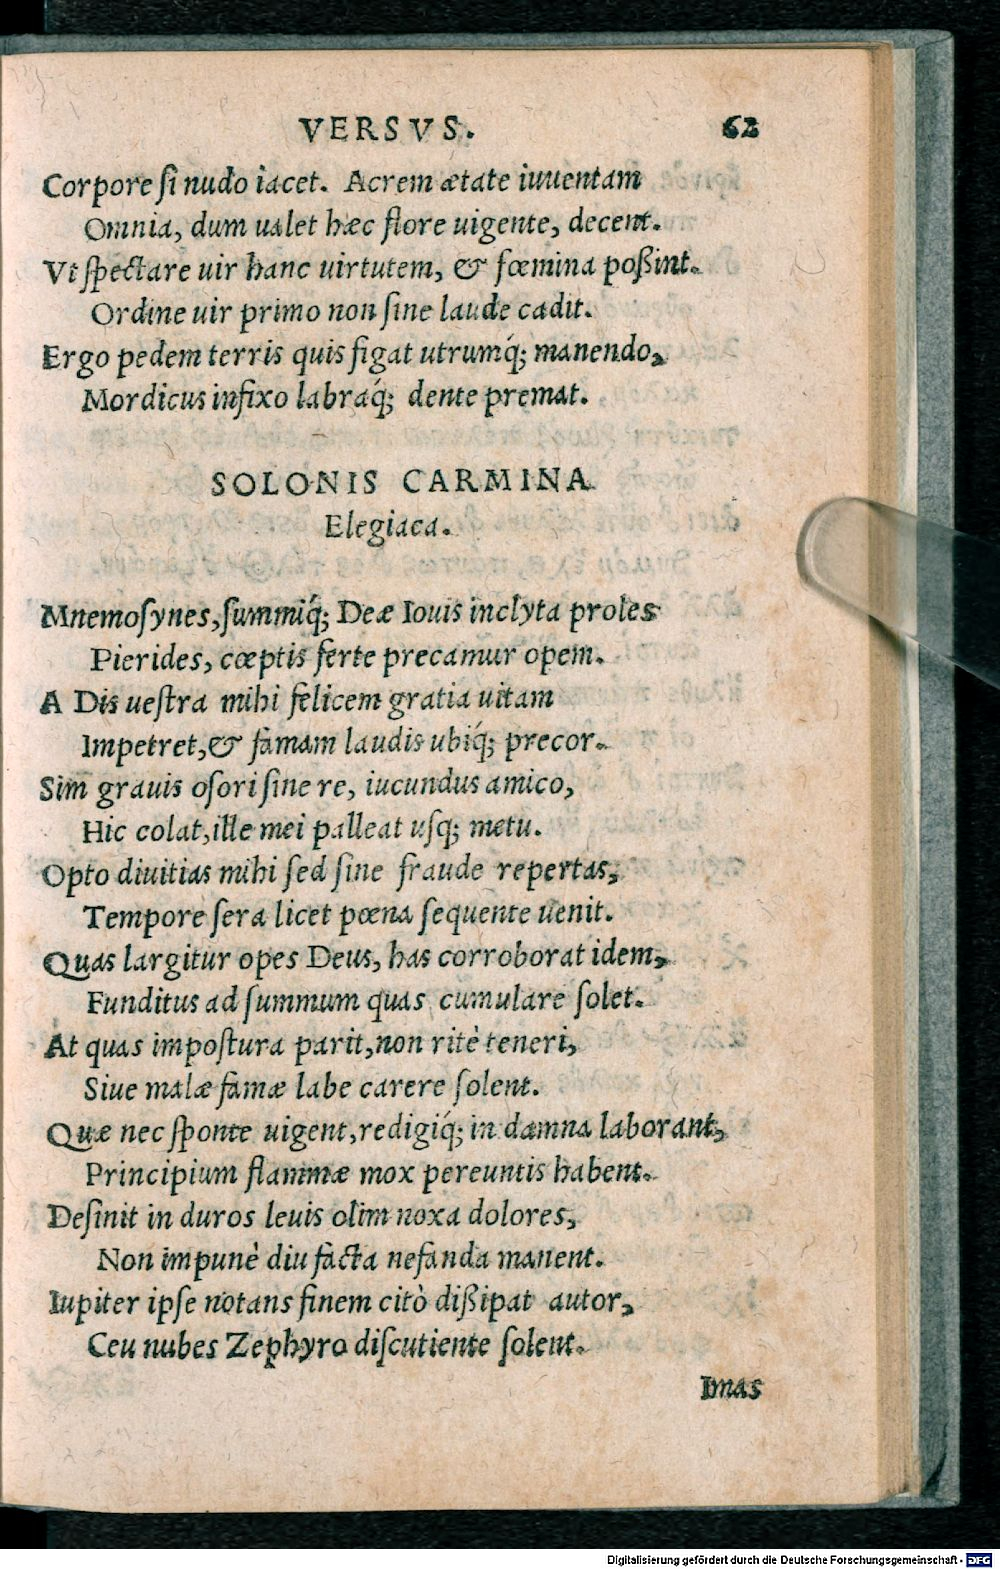 VERSVS. 62
Corpore ſi nudo iacet. Acrem ætate iuuentam
Omnia, dum ualet hæc flore uigente, decent.
Vt ſpectare uir hanc uirtutem, & fœmina poßint.
Ordine uir primo non ſine laude cadit.
Ergo pedem terris quis figat utrumq́; manendo,
Mordicus infixo labraq́; dente premat.
SOLONIS CARMINA
Elegiaca.
Mnemoſynes, ſummiq́; Deæ Iouis inclyta proles
Pierides, cœptis ferte precamur opem.
A Dis ueſtra mihi felicem gratia uitam
Impetret, & famam laudis ubiq́; precor.
Sim grauis oſori ſine re, iucundus amico,
Hic colat, ille mei palleat uſq; metu.
Opto diuitias mihi ſed ſine fraude repertas,
Tempore ſera licet pœna ſequente uenit.
Quas largitur opes Deus, has corroborat idem,
Funditus ad ſummum quas cumulare ſolet.
At quas impoſtura parit, non ritè teneri,
Siue malæ famæ labe carere ſolent.
Quæ nec ſponte uigent, redigiq́; in damna laborant,
Principium flammæ mox pereuntis habent.
Deſinit in duros leuis olim noxa dolores,
Non impunè diu facta nefanda manent.
Iupiter ipſe notans finem citò dißipat autor,
Ceu nubes Zephyro diſcutiente ſolent.
Imas
Digitalisierung gefördert durch die Deutsche Forschungsgemeinschaft - DFG